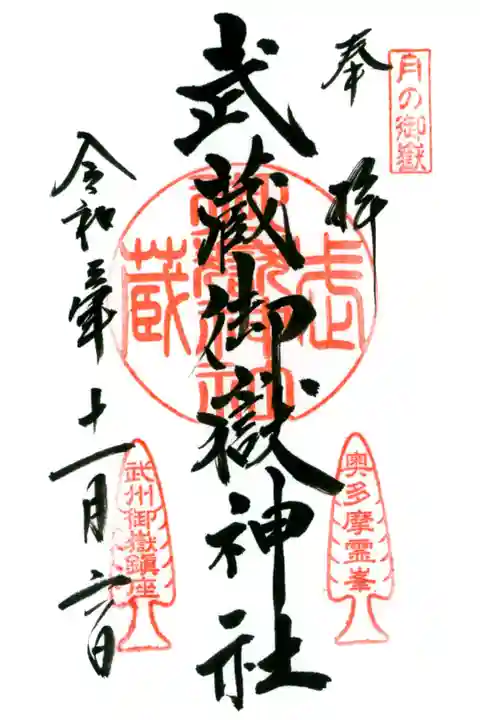 月の御嶽
奉拝
奥多摩霊峯
武蔵御嶽神社
武州御嶽鎮座
令和三年十一月六日